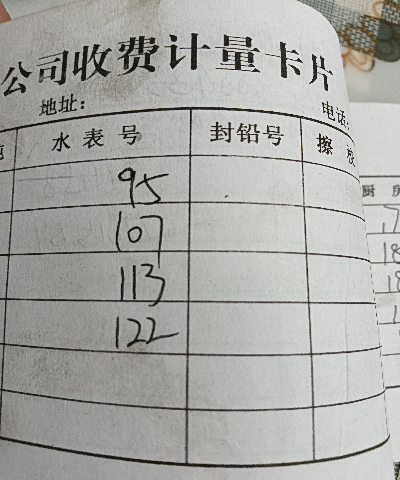 公司收费计量卡片
地址： 电话：
水表号 封铅号 擦
厨房
95
107
113
122